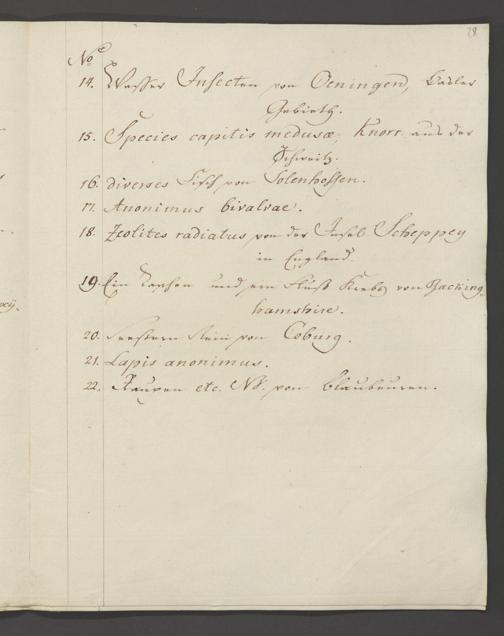 28
No
14. Wasser Insecten von Oeningen, Basler
Gebieth.
15. Species capitis medusæ, Knorr. aus der
Schweitz.
16. diverses Fisch von Solenhossen.
17. Anonimus bivalvae.
18. Zeolites radiatus von der Insel Scheppey
in England.
19. Ein und ein Fluss Krebs von Backing
hamshire.
20. Seestern Stein von Coburg.
21. Lapis anonimus.
22. etc. NB. von Blaubeuren.